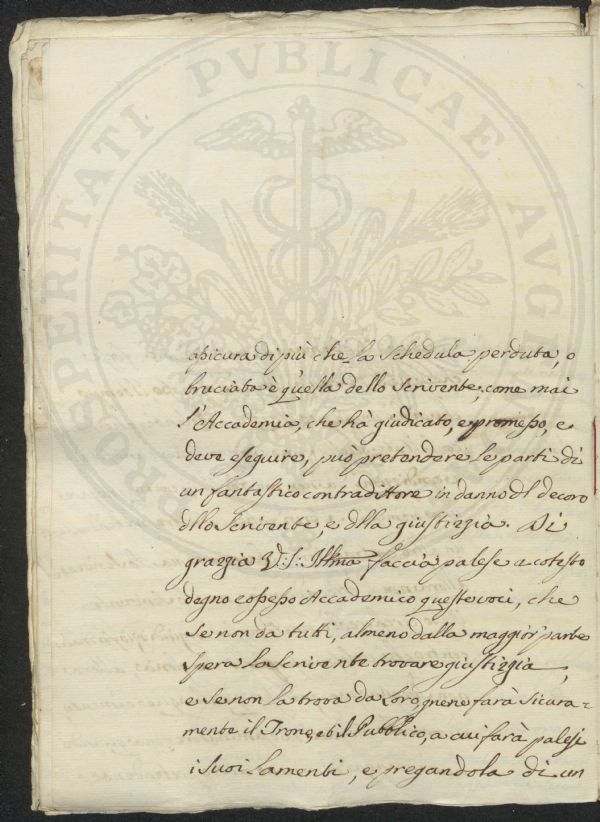 PROSPERITATI PVBLICAE AVGENDAE
assicura di più che la schedula perduta, o
bruciata è quella dello scrivente, come mai
l'Accademia, che hà giudicato, e promesso, e
deve eseguire, può pretendere le parti di
un fantastico contradittore in danno dl decoro
dllo scrivente, e dlla giustizzia. Di
grazzia V: S: Illma faccia palese a cotesto
degno Accademico queste voci, che
se non da tutti, almeno dalla maggior parte
spera lo scrivente trovare giustizzia,
e se non la trova da loro, gliene farà sicura-
mente il Trono, et il Pubblico, a cui farà palesi
i suoi lamenti, e pregandola di un